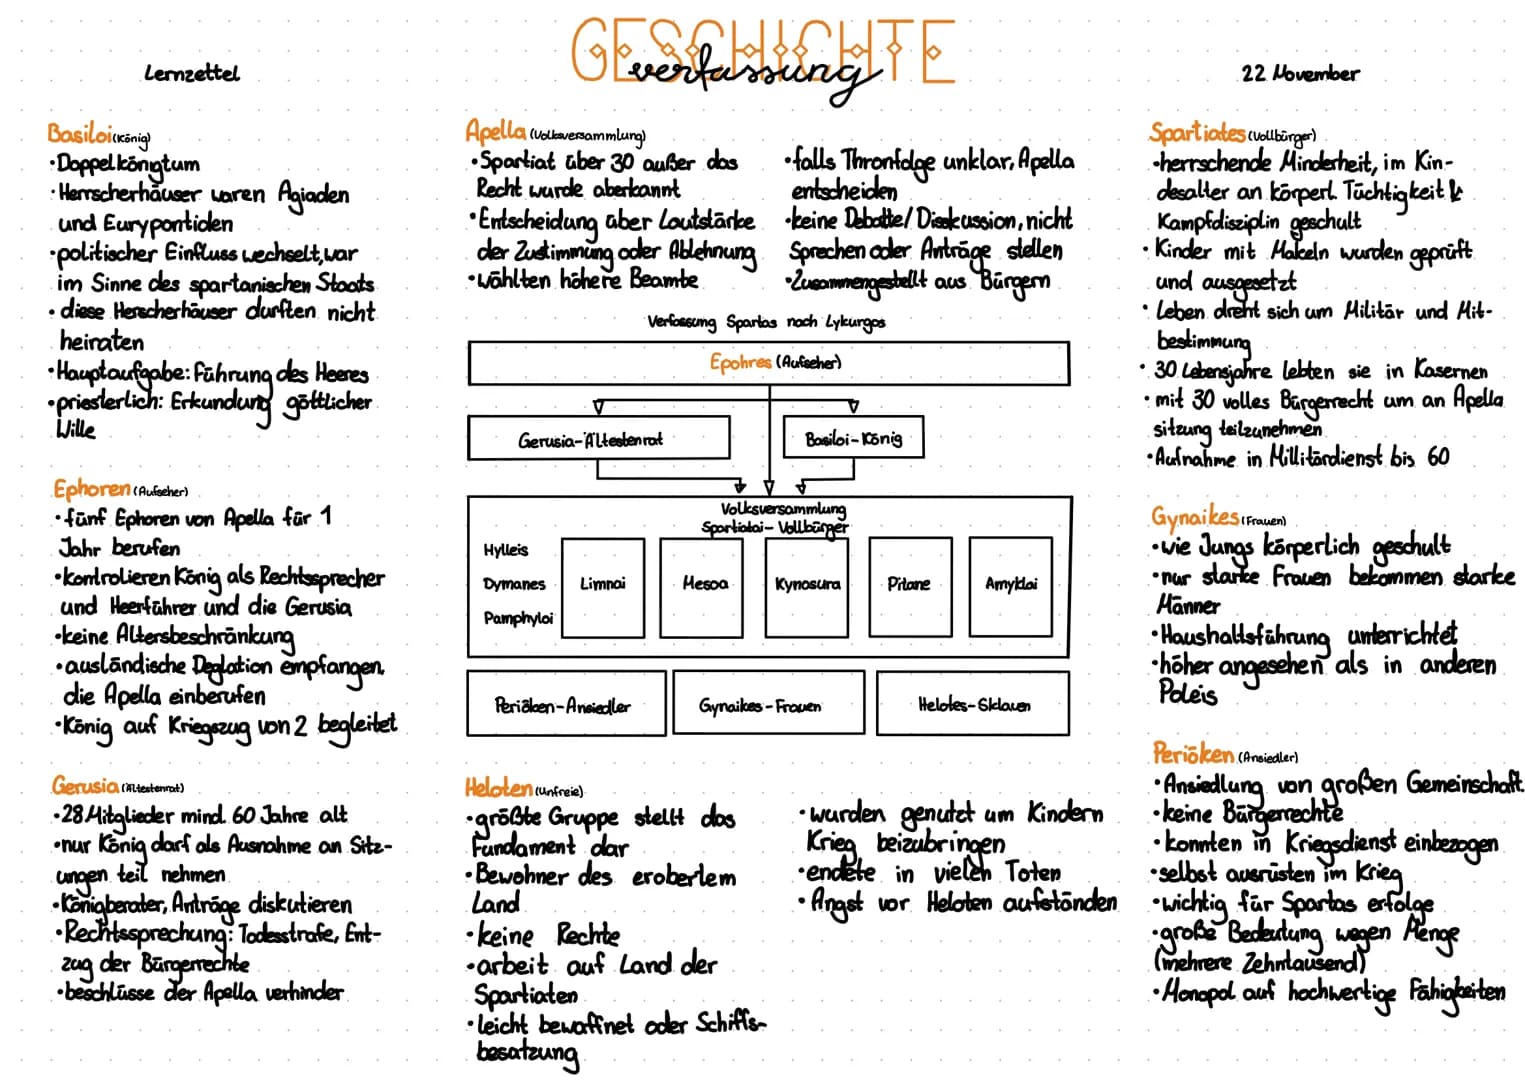 GESCHICHTE
verfassung
Lernzettel
22 November
Basiloi (König)
•Doppelkönigtum
•Herrscherhäuser waren Agiaden
und Eurypontiden
•politischer Einfluss wechselt, war
im Sinne des spartanischen Staats
•diese Herscherhäuser durften nicht
heiraten
•Hauptaufgabe: Führung des Heeres
•priesterlich: Erkundung göttlicher
Wille
Ephoren (Aufseher)
•fünf Ephoren von Apella für 1
Jahr berufen
•kontrolieren König als Rechtssprecher
und Heerführer und die Gerusia
•keine Altersbeschränkung
•ausländische Deglation empfangen,
die Apella einberufen
•König auf Kriegszug von 2 begleitet
Gerusia (Ältestenrat)
•28 Mitglieder mind. 60 Jahre alt
•nur König darf als Ausnahme an Sitz-
ungen teil nehmen
•Königberater, Anträge diskutieren
•Rechtssprechung: Todesstrafe, Ent-
zug der Bürgerrechte
•beschlüsse der Apella verhinder
Apella (Volksversammlung)
•Spartiat über 30 außer das
Recht wurde aberkannt
•Entscheidung über Lautstärke
der Zustimmung oder Ablehnung
•wählten höhere Beamte
•falls Thronfolge unklar, Apella
entscheiden
•keine Debatte/ Disskussion, nicht
Sprechen oder Anträge stellen
•Zusammengestellt aus Bürgern
Verfassung Spartas nach Lykurgos
Epohres (Aufseher)
Gerusia-Ältestenrat
Basiloi-König
Volksversammlung
Spartiatai-Vollbürger
Hylleis
Dymanes
Pamphyloi
Limnai
Mesoa
Kynosura
Pitane
Amyklai
Periöken-Ansiedler
Gynaikes-Frauen
Helotes-Sklaven
Heloten (Unfreie)
•größte Gruppe stellt das
Fundament dar
•Bewohner des erobertem
Land
•keine Rechte
•arbeit auf Land der
Spartiaten
•leicht bewaffnet oder Schiffs-
besatzung
•wurden genutzt um Kindern
Krieg beizubringen
•endete in vielen Toten
•Angst vor Heloten aufständen
Spartiates (Vollbürger)
•herrschende Minderheit, im Kin-
desalter an körperl. Tüchtigkeit &
Kampfdisziplin geschult
•Kinder mit Makeln wurden geprüft
und ausgesetzt
•Leben dreht sich um Militär und Mit-
bestimmung
•30 Lebensjahre lebten sie in Kasernen
•mit 30 volles Bürgerrecht um an Apella
sitzung teilzunehmen
•Aufnahme in Millitärdienst bis 60
Gynaikes (Frauen)
•wie Jungs körperlich geschult
•nur starke Frauen bekommen starke
Männer
•Haushaltsführung unterrichtet
•höher angesehen als in anderen
Poleis
Periöken (Ansiedler)
•Ansiedlung von großen Gemeinschaft.
•keine Bürgerrechte
•konnten in Kriegsdienst einbezogen
•selbst ausrüsten im Krieg
•wichtig für Spartas erfolge
•große Bedeutung wegen Menge
(mehrere Zehntausend)
•Monopol auf hochwertige Fähigkeiten